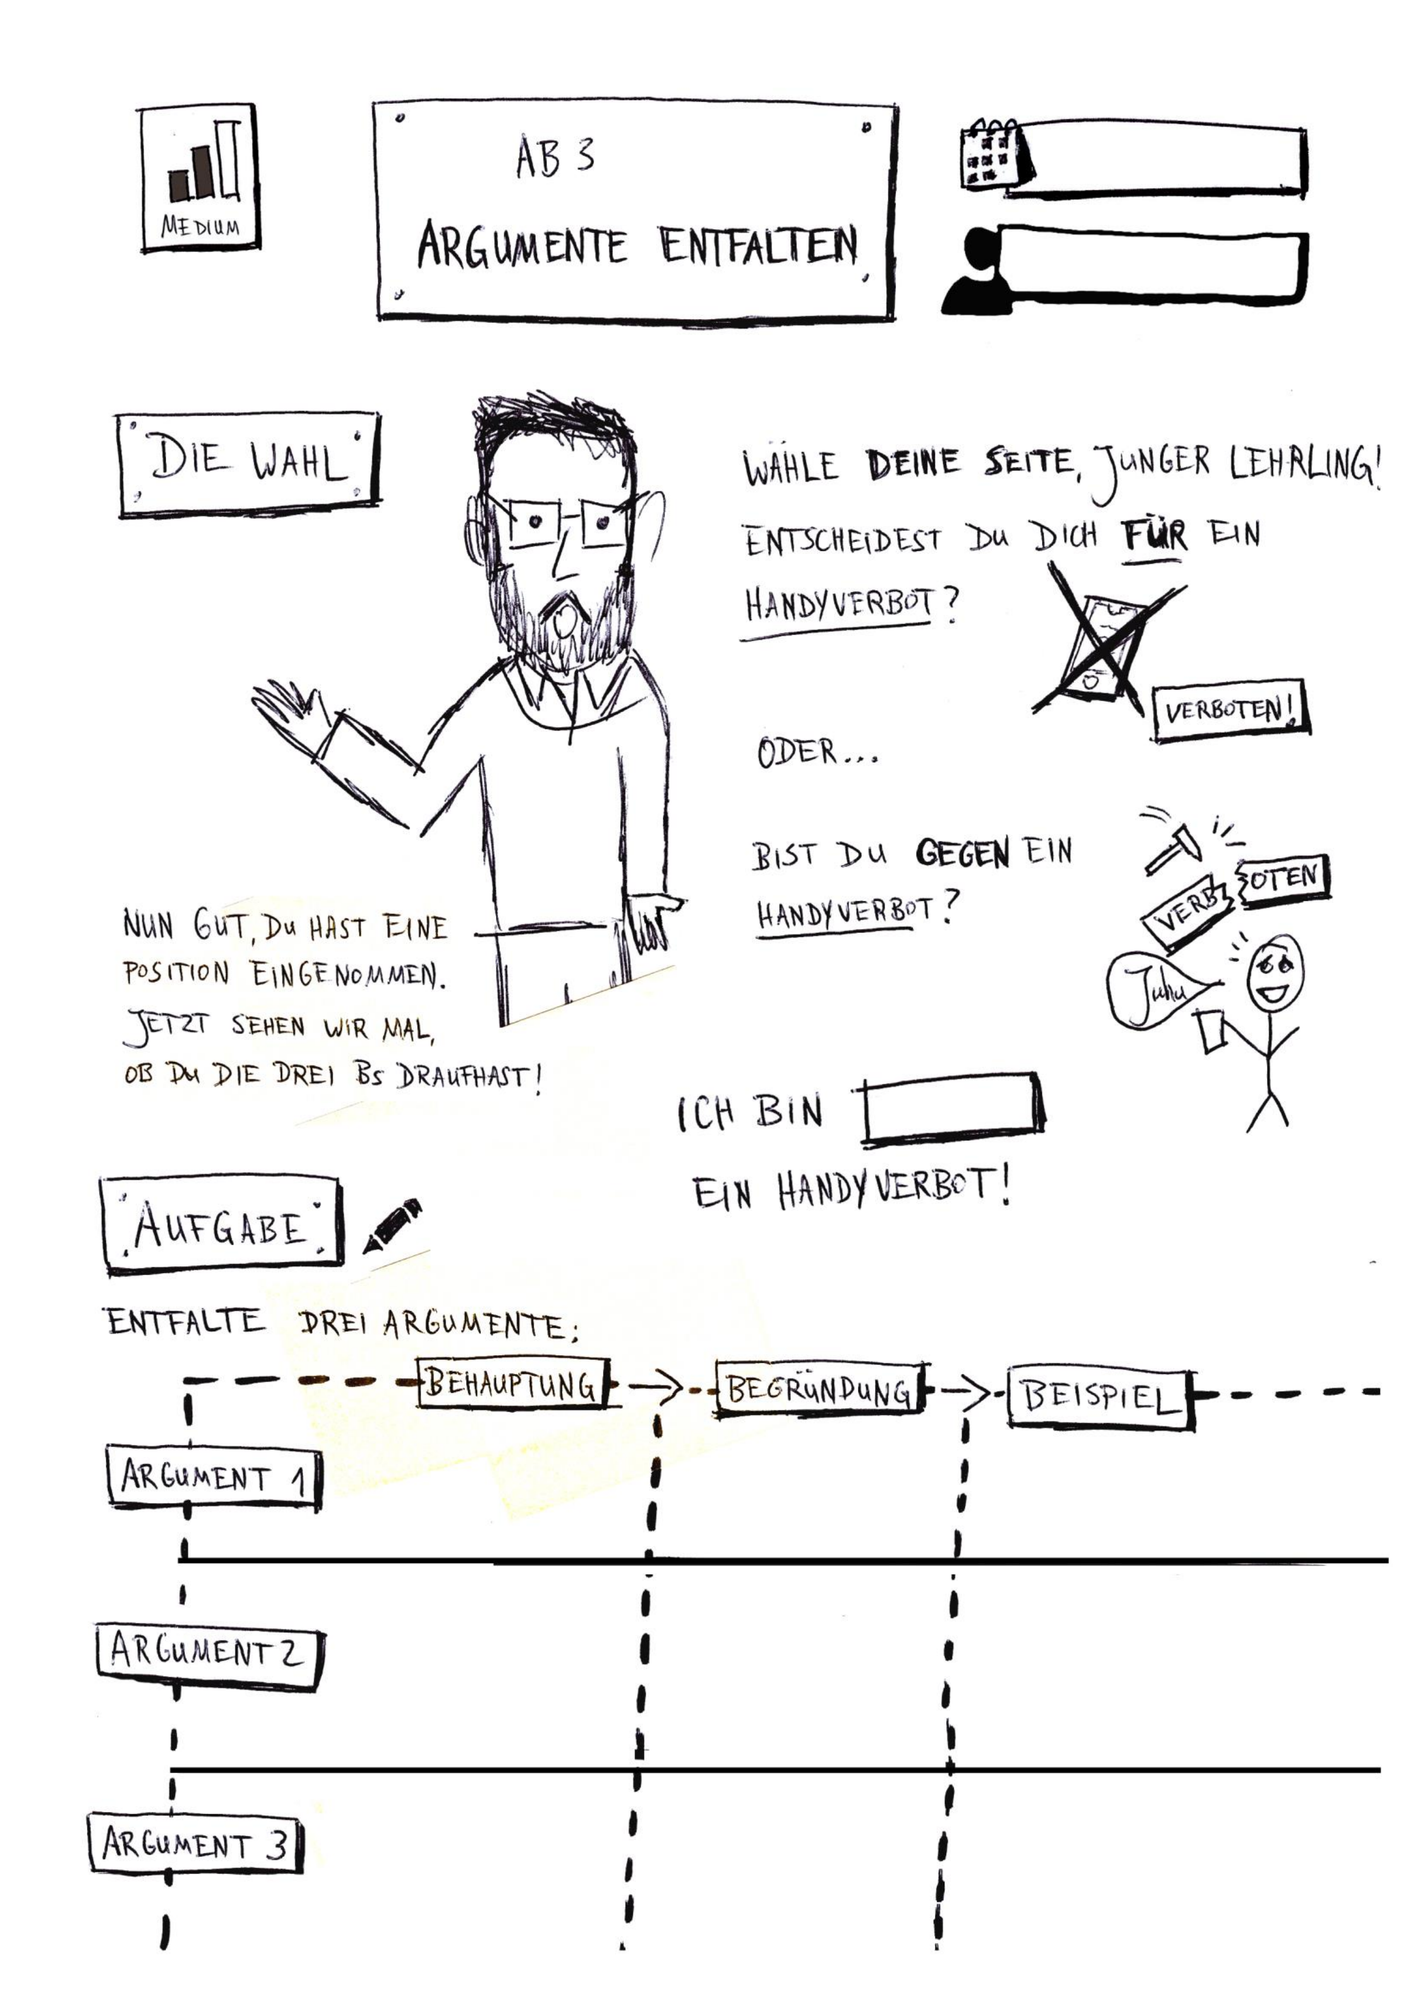 MEDIUM
AB 3
ARGUMENTE ENTFALTEN
DIE WAHL
WÄHLE DEINE SEITE, JUNGER LEHRLING!
ENTSCHEIDEST DU DICH FÜR EIN
HANDYVERBOT?
VERBOTEN!
ODER...
BIST DU GEGEN EIN
HANDYVERBOT?
VERB OTEN
Juhu
NUN GUT, DU HAST EINE
POSITION EINGENOMMEN.
JETZT SEHEN WIR MAL,
OB DU DIE DREI BS DRAUFHAST!
ICH BIN
EIN HANDYVERBOT!
AUFGABE
ENTFALTE DREI ARGUMENTE:
BEHAUPTUNG
BEGRÜNDUNG
BEISPIEL
ARGUMENT 1
ARGUMENT 2
ARGUMENT 3